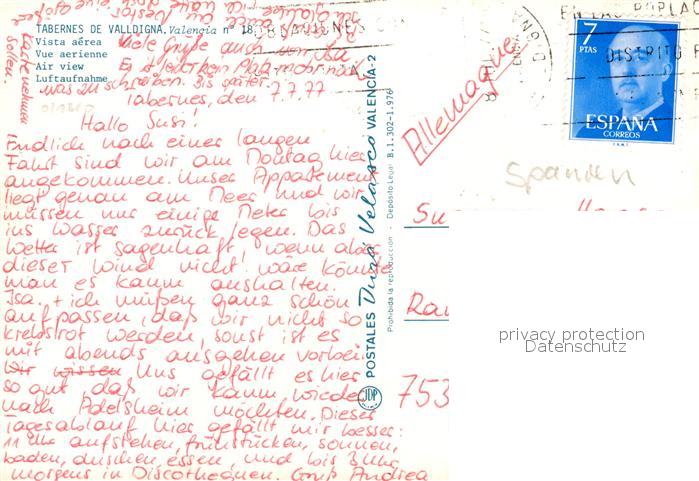 TABERNES DE VALLDIGNA. Valencia nº 18
Vista aérea
Vue aerienne
Air view
Luftaufnahme
Viele Grüße auch von Isa
Es ist leider kein Platz mehr noch
was zu schreiben. Bis später
Tabernes, den 7.7.77
Hallo Susi!
Endlich nach einer langen
Fahrt sind wir am Montag hier
angekommen. Unser Appartement
liegt genau am Meer und wir
müssen nur einige Meter bis
ins Wasser zurück legen. Das
Wetter ist sagenhaft! wenn aber
dieser Wind nicht wäre könnte
man es kaum aushalten.
Isa. + ich müßen ganz schön
aufpassen, daß wir nicht so
krebsrot werden, sonst ist es
mit abends ausgehen vorbei.
Wir wissen Uns gefällt es hier
so gut daß wir kaum wieder
nach Adelsheim möchten. Dieser
Tagesablauf hier gefällt mir besser:
11 Uhr aufstehen, frühstücken, sonnen,
baden, duschen, essen, und bis 3 Uhr
morgens in Discothequen. Gruß Andrea
POSTALES Durá Velasco VALENCIA-2
JDP
Prohibida la reproducción - Depósito Legal B. 1.302-1.976
Allemagne
7
PTAS
ESPAÑA
CORREOS
F.N.M.T.
EN LAS POBLAC
DISTRITO
Spanien
Su
Ran
753
privacy protection
Datenschutz